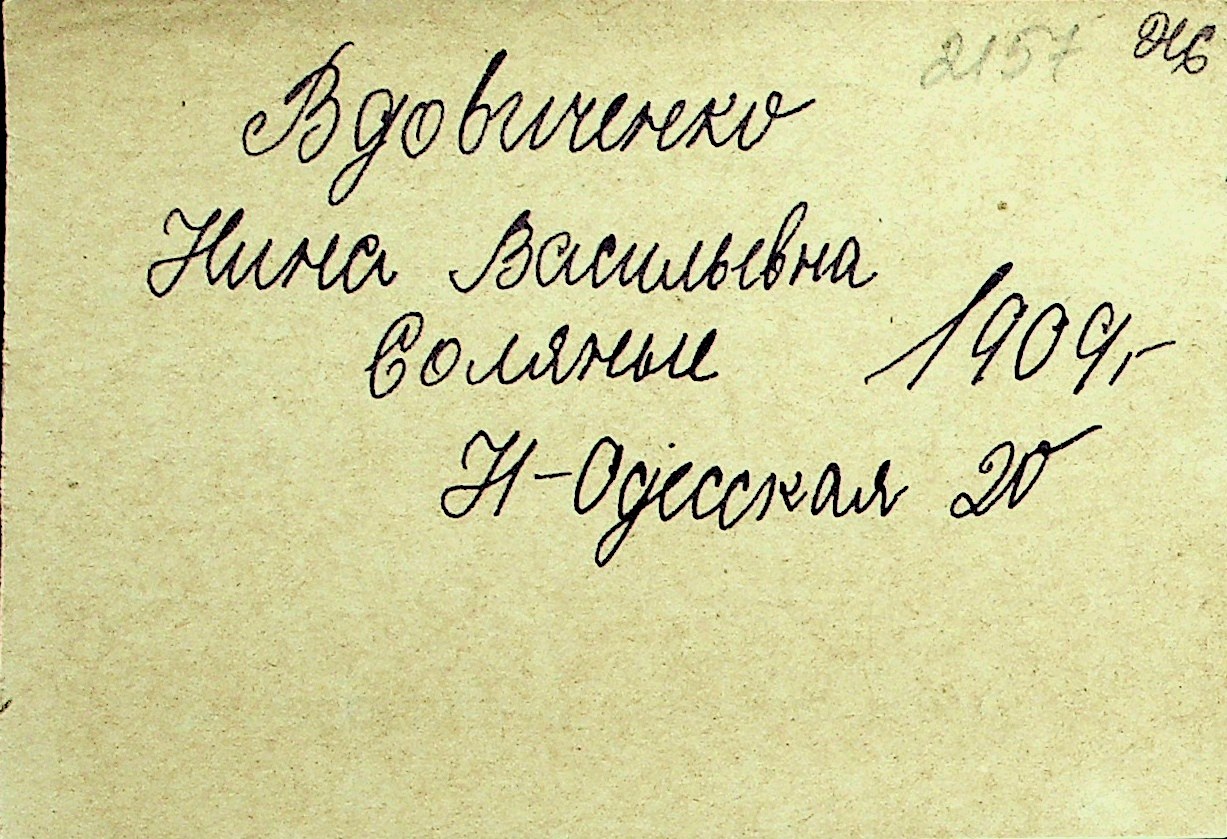 2157
Вдовиченко
Нина Васильевна
Соляные 1909,-
Н-Одесская 20